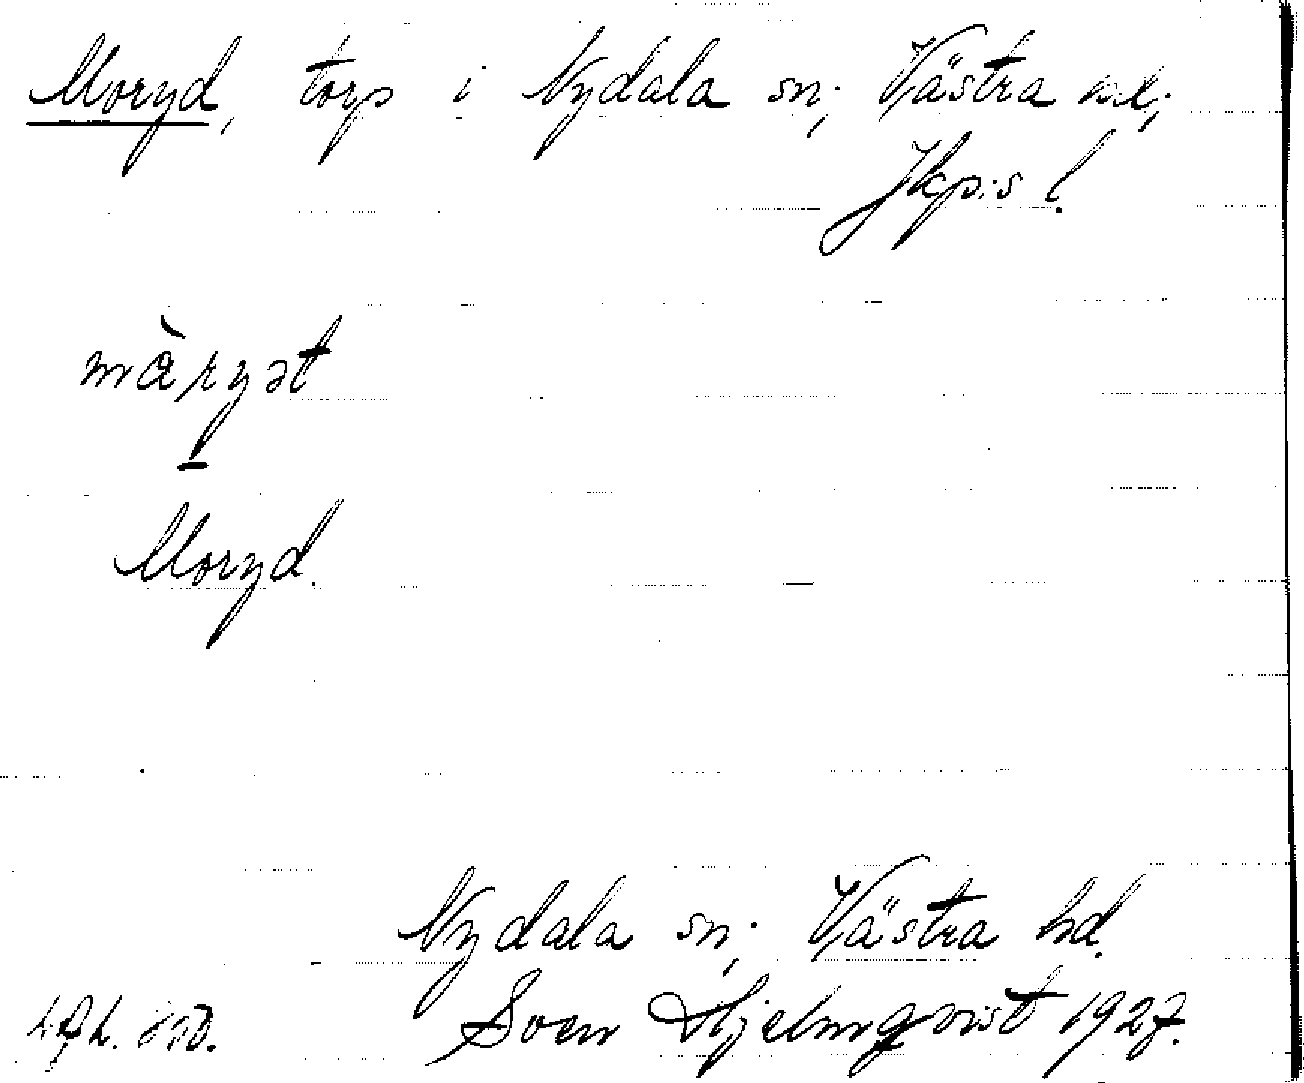 Moryd, torp i Nydala sn; Västra hd;
Jkp:s l.
mày̱rət
Moryd.
Nydala sn; Västra hd.
Sven Hjelmqvist 1927.